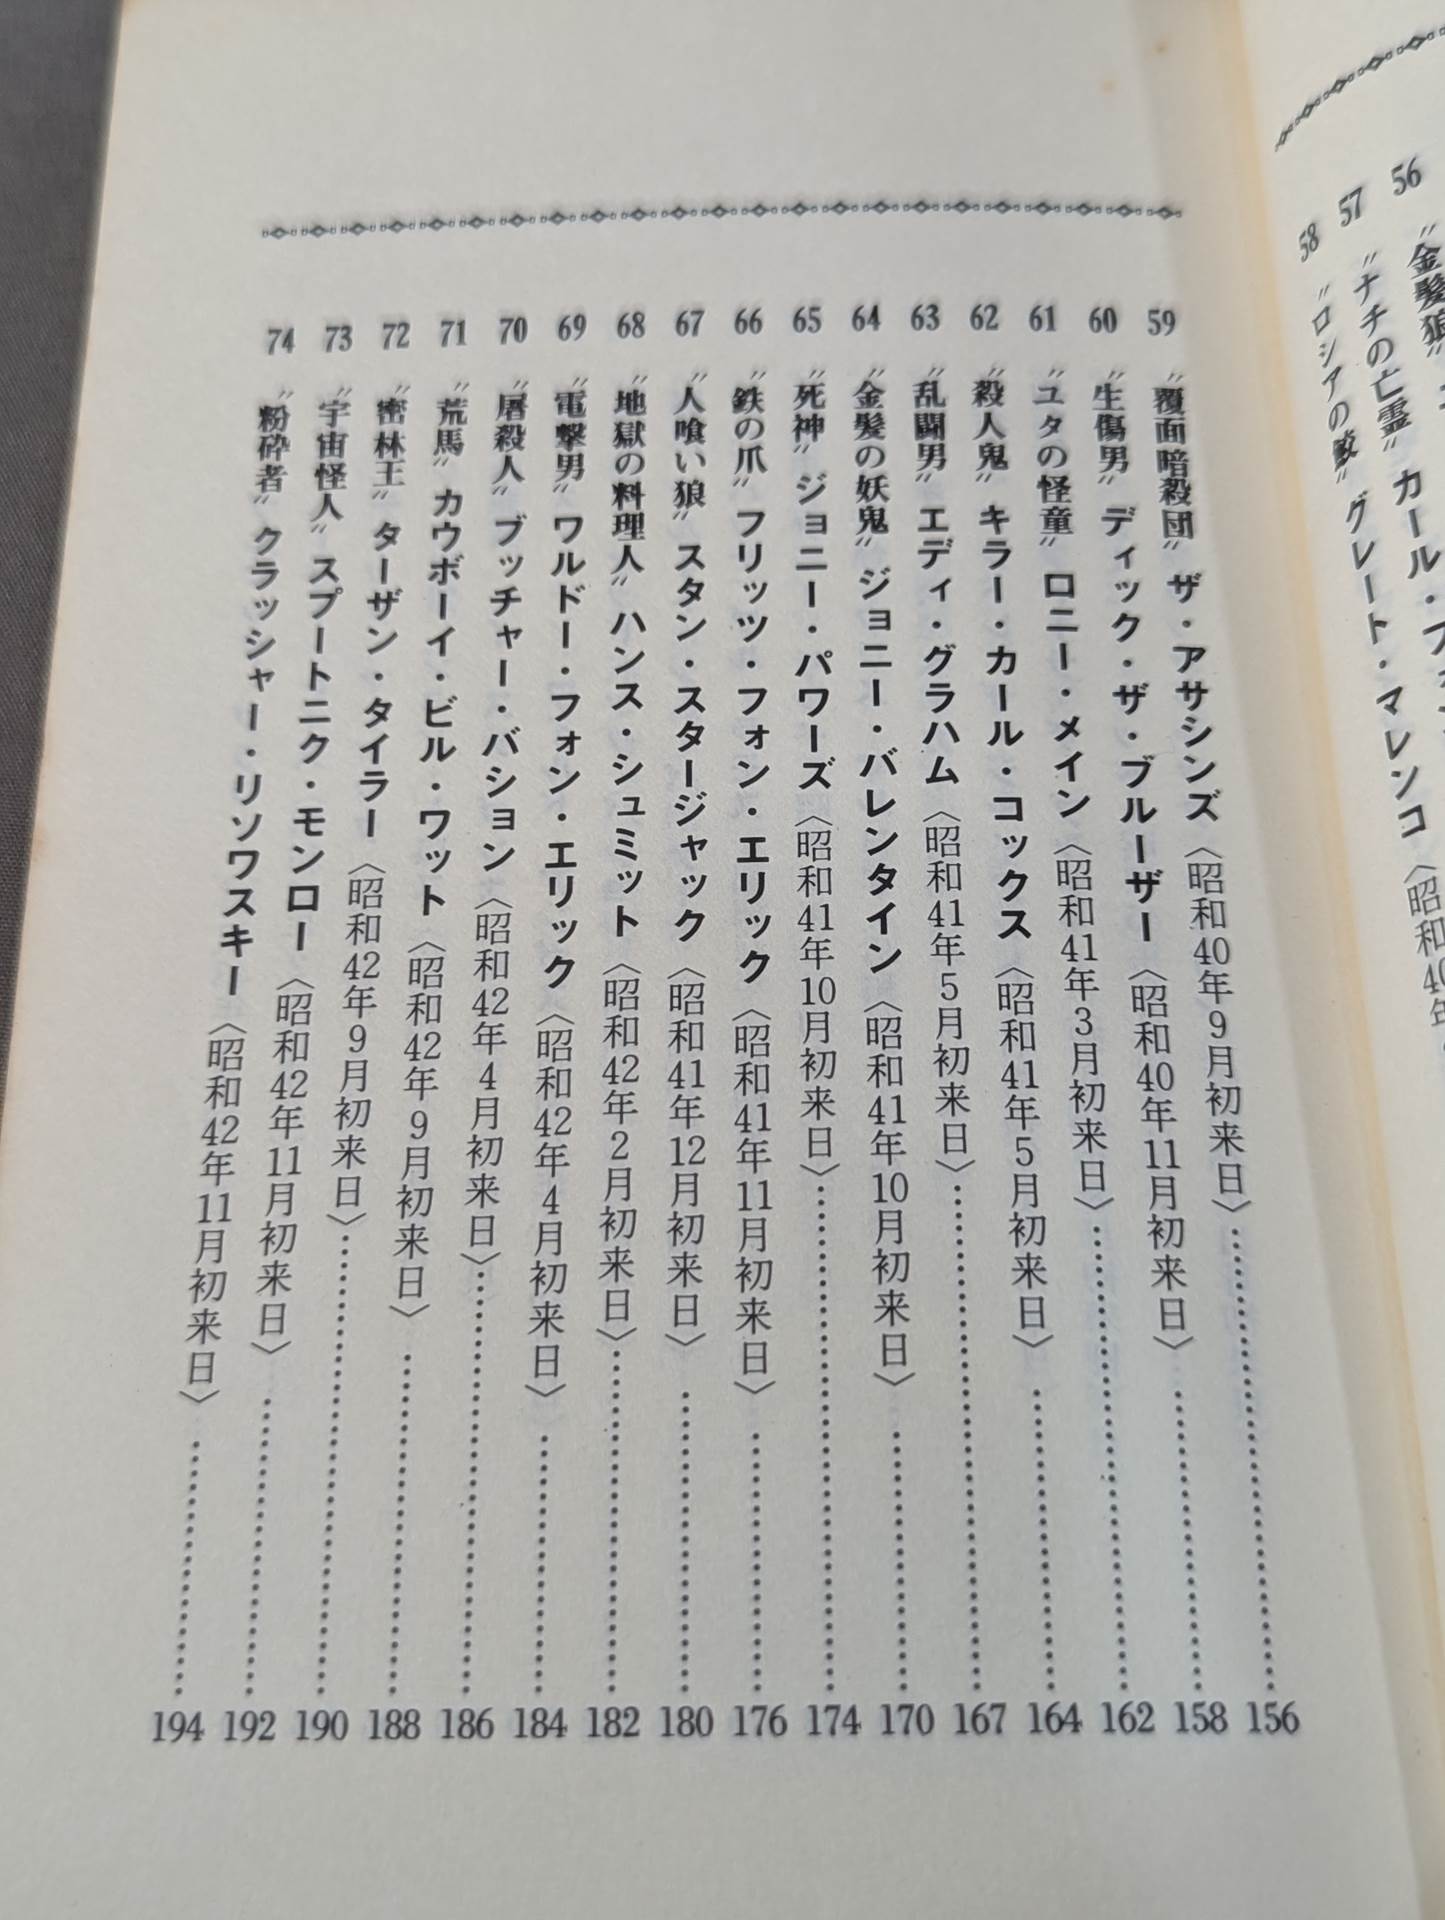 56 〝金髪狼〟 カール・
57 〝ナチの亡霊〟 カール・フォン・
58 〝ロシアの鮫〟 グレート・マレンコ〈昭和40年
59 〝覆面暗殺団〟 ザ・アサシンズ〈昭和40年9月初来日〉…………156
60 〝生傷男〟 ディック・ザ・ブルーザー〈昭和40年11月初来日〉…………158
61 〝ユタの怪童〟 ロニー・メイン〈昭和41年3月初来日〉…………162
62 〝殺人鬼〟 キラー・カール・コックス〈昭和41年5月初来日〉…………164
63 〝乱闘男〟 エディ・グラハム〈昭和41年5月初来日〉…………167
64 〝金髪の妖鬼〟 ジョニー・バレンタイン〈昭和41年10月初来日〉…………170
65 〝死神〟 ジョニー・パワーズ〈昭和41年10月初来日〉…………174
66 〝鉄の爪〟 フリッツ・フォン・エリック〈昭和41年11月初来日〉…………176
67 〝人喰い狼〟 スタン・スタージャック〈昭和41年12月初来日〉…………180
68 〝地獄の料理人〟 ハンス・シュミット〈昭和42年2月初来日〉…………182
69 〝電撃男〟 ワルドー・フォン・エリック〈昭和42年4月初来日〉…………184
70 〝屠殺人〟 ブッチャー・バション〈昭和42年4月初来日〉…………186
71 〝荒馬〟 カウボーイ・ビル・ワット〈昭和42年9月初来日〉…………188
72 〝密林王〟 ターザン・タイラー〈昭和42年9月初来日〉…………190
73 〝宇宙怪人〟 スプートニク・モンロー〈昭和42年11月初来日〉…………192
74 〝粉砕者〟 クラッシャー・リソワスキー〈昭和42年11月初来日〉…………194